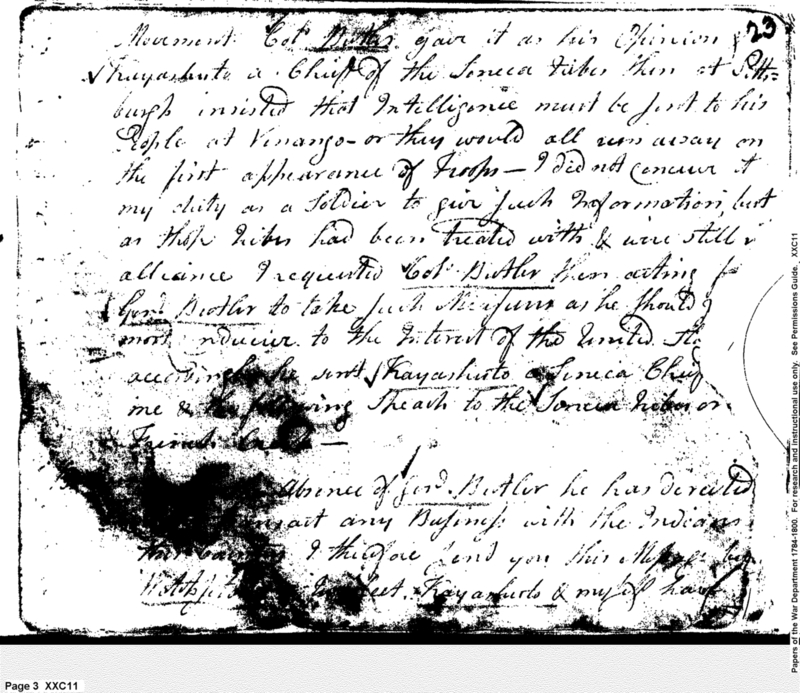 23
Movement Col. Butler gave it as his Opinion &
Kayashuto a Chief of the Seneca tribes then at Pitts=
burgh insisted that Intelligence must be sent to his
People at Venango – or they would all run away on
the first appearance of Troops – I did not conceive it
my duty as a Soldier to give such Information, but
as those tribes had been treated with & were still
alliance I requested Col. Butler then acting f
Genl. Butler to take such Measures as he should
most to the Interest of the United Sta
accordingly he sent Kayashuto a Seneca Chief
me & the following Speach to the Seneca tribes on
French Creek –
Absence of Genl. Butler he has directed
any Business with the Indians
I therefore send you this Message by
Kayashuto & myself have
Page 3 XXC11
Papers of the War Department 1784-1800. For research and instructional use only. See Permissions Guide. XXC11